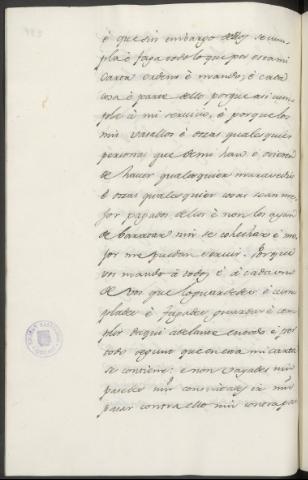 é que sin embargo dello se cum
pla é faga todo lo que por esta mi
carta ordeno é mando, é cada
cosa é parte dello porque asi cum
ple á mi servicio, é porque los
mis vasallos é otras qualesquier
personas que de mi han é ovieren
de haver qualesquier maravedis
é otras qualesquier cosas sean me
jor pagados dellos é non los ayan
de baratar nin se cohechar é me
jor me puedan servir. Porque
vos mando á todos é á cada uno
de vos que lo guardedes é cum
plades é fagades guardar é cum
plir daqui adelante en todo é por
todo segunt que en esta mi carta
se contiene: é non vayades nin
pasedes nin consintades ir nin
pasar contra ello nin contra par